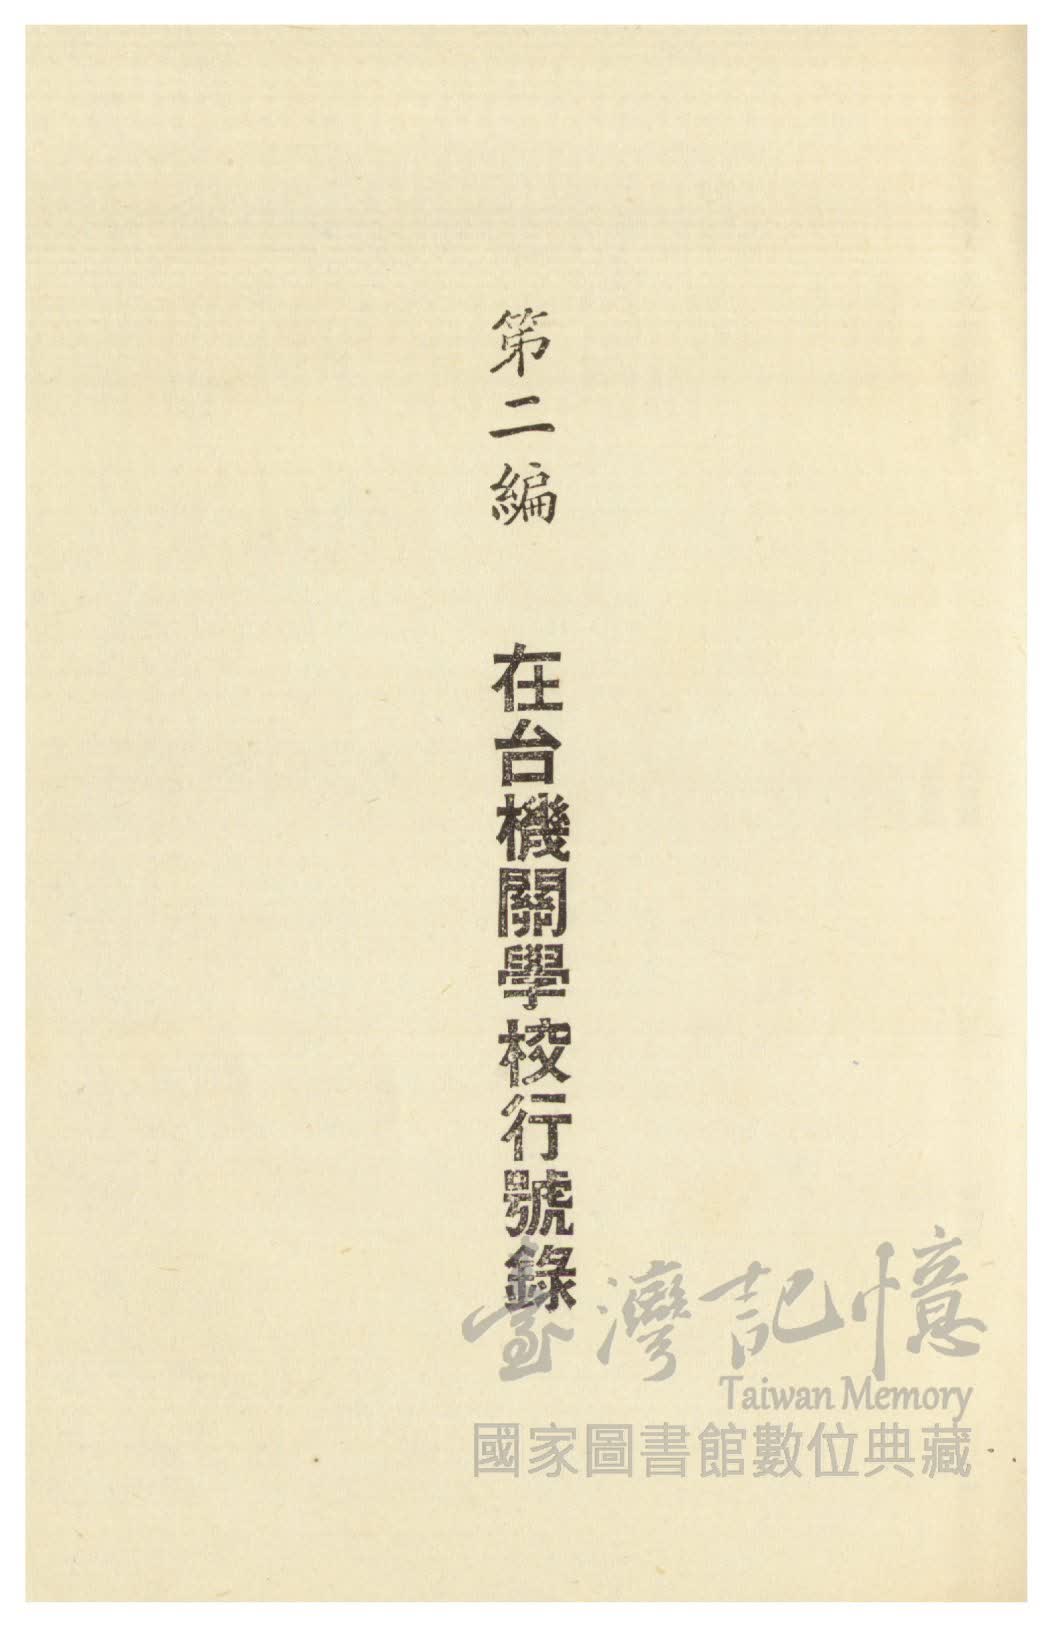 第二編　在台機關學校行號錄
臺灣記憶
Taiwan Memory
國家圖書館數位典藏